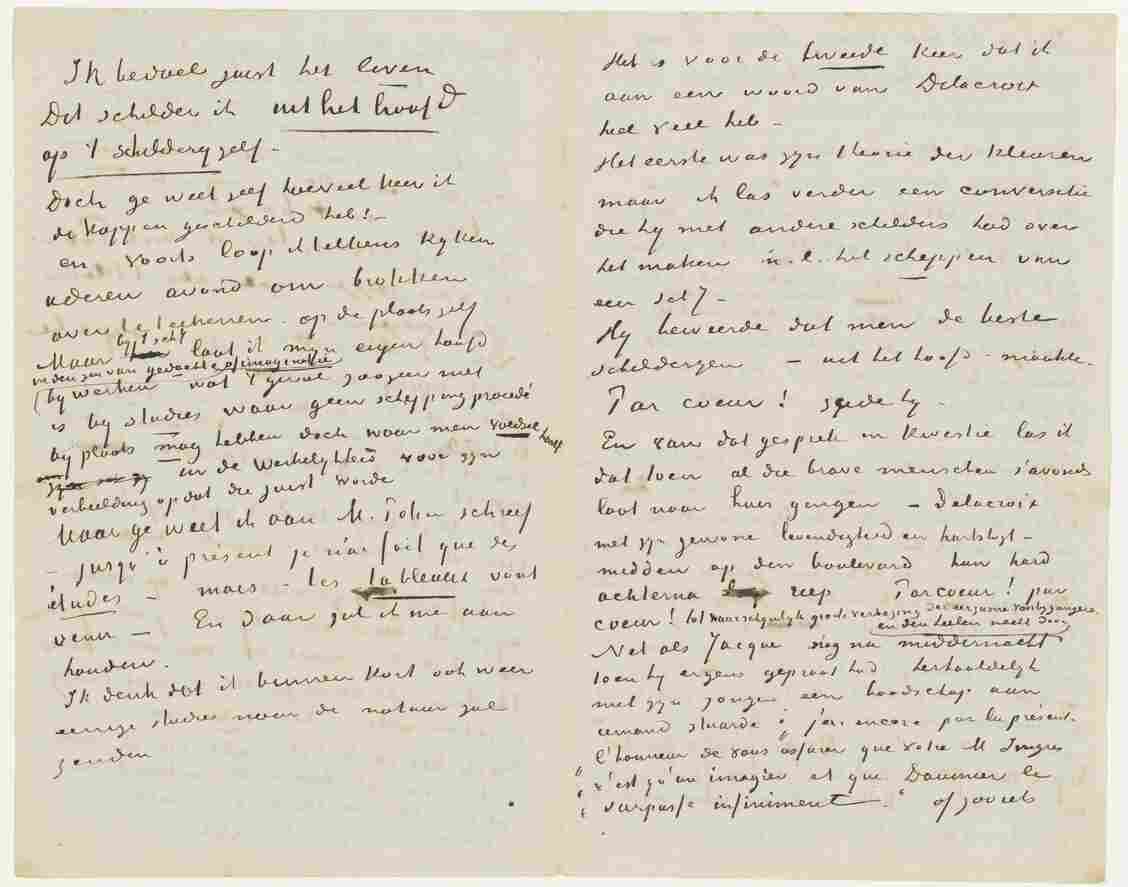 Ik bedoel juist het leven
Dit schilder ik uit het hoofd
op 't schilderij zelf –
Doch ge weet zelf hoeveel keer ik
de koppen geschilderd heb! –
en voorts loop ik telkens kijken
iederen avond om brokken
over te teekenen op de plaats zelf
Maar bij 't schij laat ik mijn eigen hoofd
in den zin van gedachte of imaginatie
(bij werken wat 't geval zoozeer niet
is bij studies waar geen scheppingsprocédé
bij plaats mag hebben doch waar men voedsel haalt
uit de werkelijkheid voor zijn
verbeelding opdat die juist worde
Maar ge weet ik aan M. Portier schreef
– jusqu'à présent je n'ai fait que des
études – mais – les tableaux vont
venir – En daar zal ik me aan
houden.
Ik denk dat ik binnen kort ook weer
eenige studies naar de natuur zal
zenden
Het is voor de tweede keer dat ik
aan een woord van Delacroix
heel veel heb –
Het eerste was zijn theorie der kleuren
maar ik las verder een conversatie
die hij met andere schilders had over
het maken n.l. het scheppen van
een schij –
Hij beweerde dat men de beste
schilderijen – uit het hoofd – maakte.
Par coeur! zeide hij –
En van dat gesprek in kwestie las ik
dat toen al die brave menschen s'avonds
laat naar huis gingen – Delacroix
met zijn gewone levendigheid en hartstogt –
midden op den boulevard hun hard
achterna riep Par coeur! par
coeur! tot waarschijnlijk groote verbazing der eerzame voorbijgangers
en den heelen nacht door
Net als Jacque nog na middernacht
toen hij ergens gepraat had herhaaldelijk
met zijn jongen een boodschap aan
iemand stuurde "j'ai encore par la présente
l'honneur de vous assurer que votre M Ingres
"n'est qu'un imagier et que Daumier le
"surpasse infiniment." of zooiets